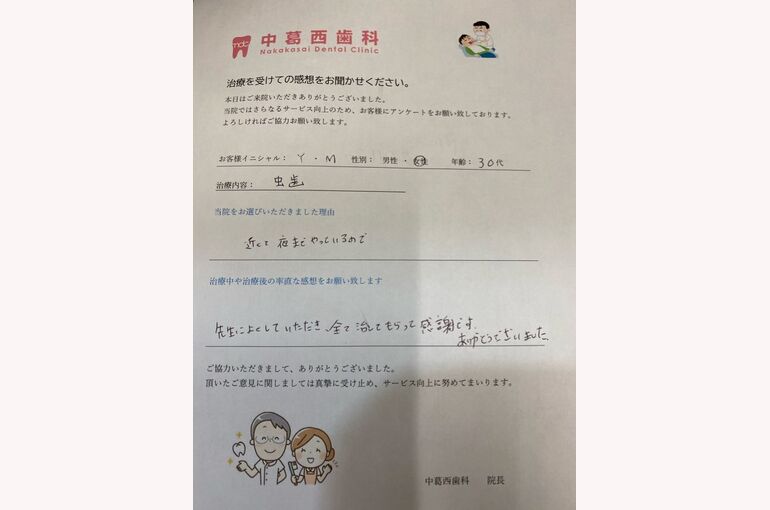 mdc
中葛西歯科
Nakakasai Dental Clinic
治療を受けての感想をお聞かせください。
本日はご来院いただきありがとうございました。
当院ではさらなるサービス向上のため、お客様にアンケートをお願い致しております。
よろしければご協力お願い致します。
お客様イニシャル： Y ・ M 性別： 男性 ・ 女性 年齢： 30代
治療内容： 虫歯
当院をお選びいただきました理由
近くて 夜までやっているので
治療中や治療後の率直な感想をお願い致します
先生によくしていただき、全て治してもらって感謝です。
ありがとうございました。
ご協力いただきまして、ありがとうございました。
頂いたご意見に関しましては真摯に受け止め、サービス向上に努めてまいります。
中葛西歯科 院長